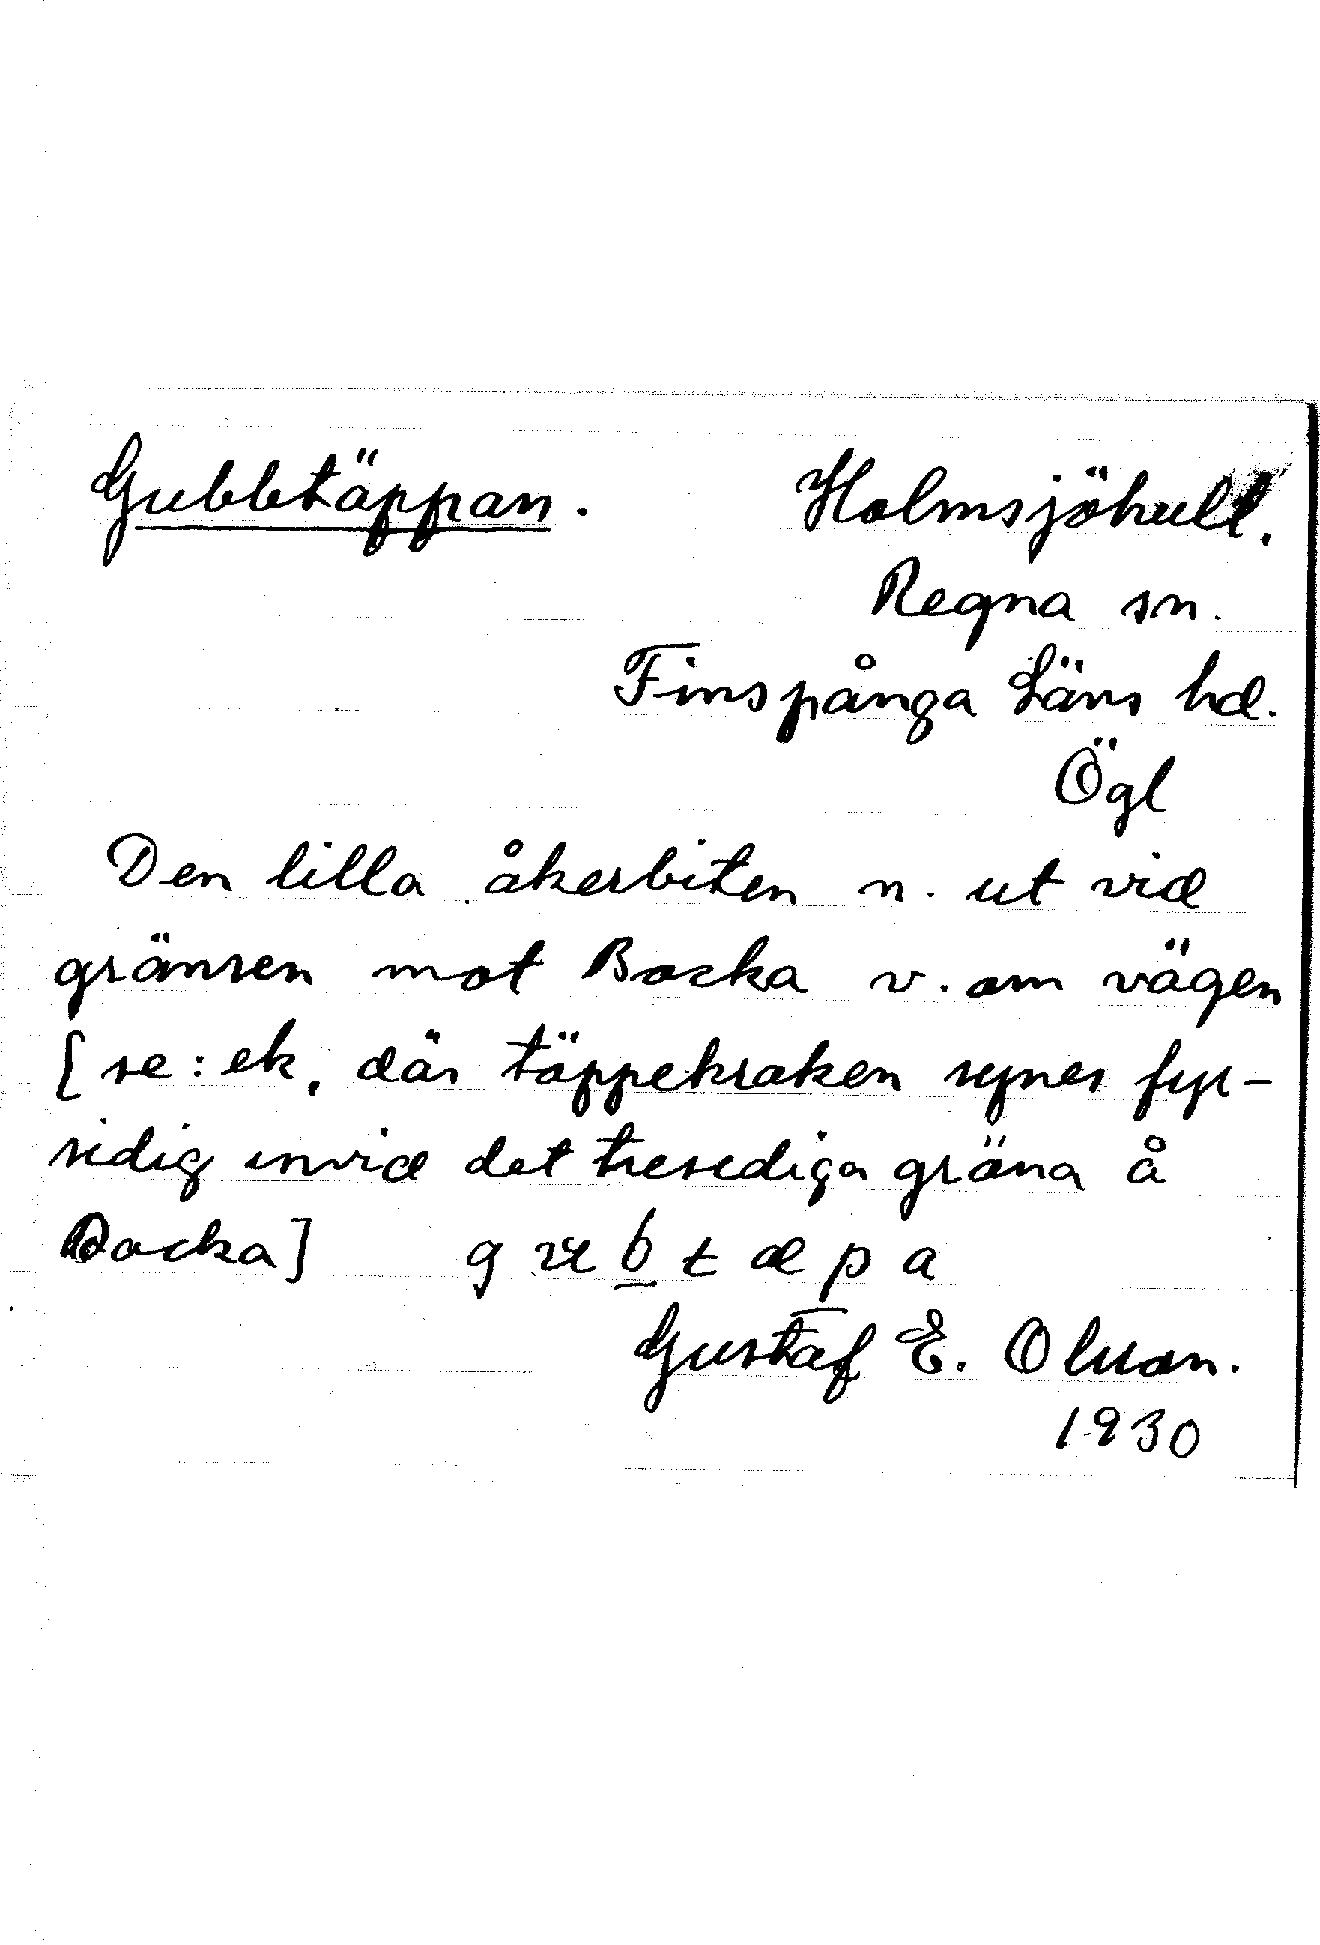 Gubbtäppan.
Holmsjöhult.
Regna sn.
Finspånga Läns hd.
Ögl
Den lilla åkerbiten n. ut vid
gränsen mot Bocka v. om vägen
[se: ek, där täppekraken synes fyr-
sidig invid det tresidiga gröna å
Bocka] g b t æ p a
Gustaf E. Olsson.
1930